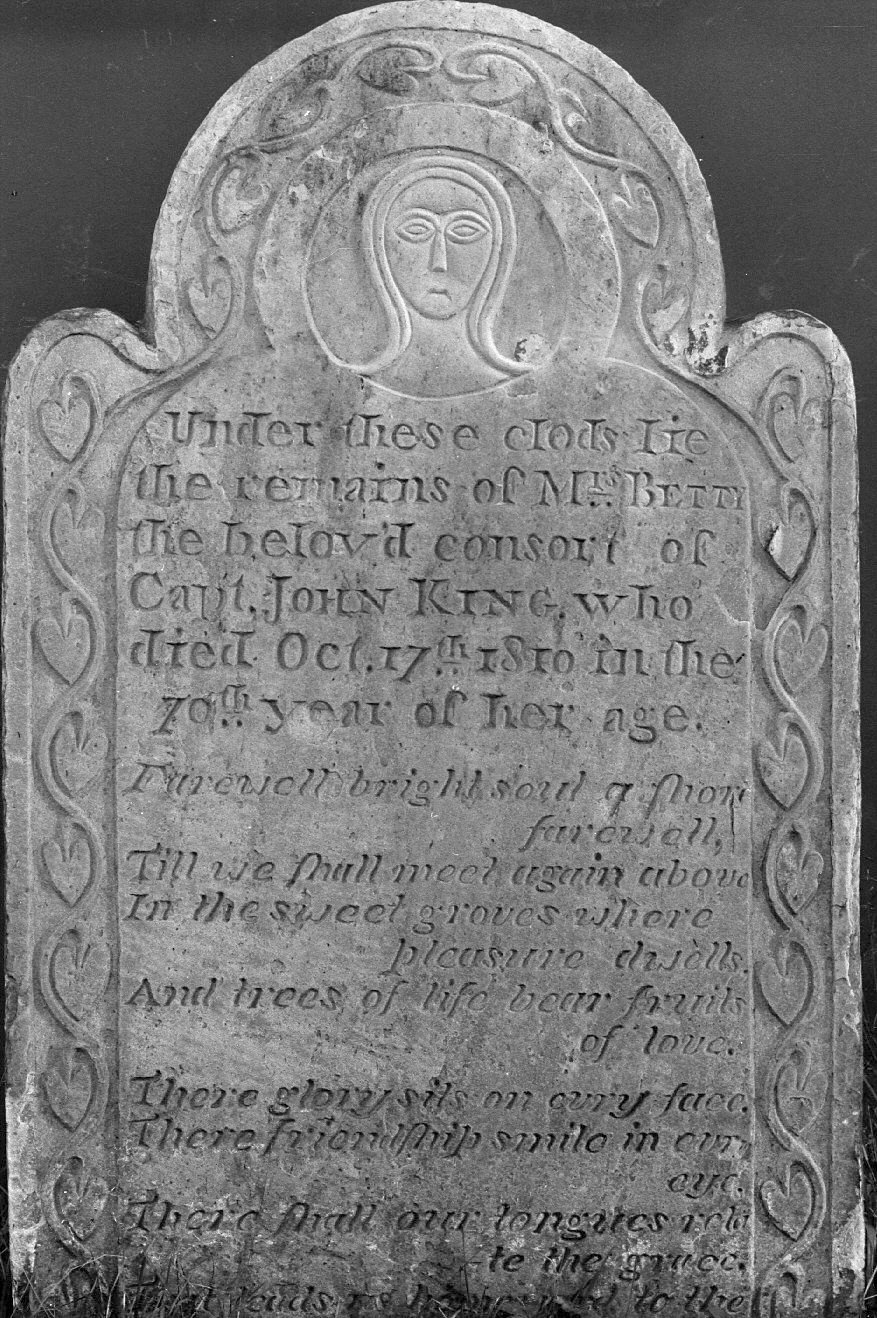 Under these clods lie
the remains of Mrs. BETTY
the belov'd consort of
Capt. JOHN KING, who
died Oct. 17th. 1810 in the
70th. year of her age.
Farewell bright soul a short
farewell,
Till we shall meet again above
In the sweet groves where
pleasure dwells
And trees of life bear fruits
of love.
There glory sits on evry face.
There friendship smiles in evry
eye.
There shall our tongues rela
te the grace
That leads us homeward to the